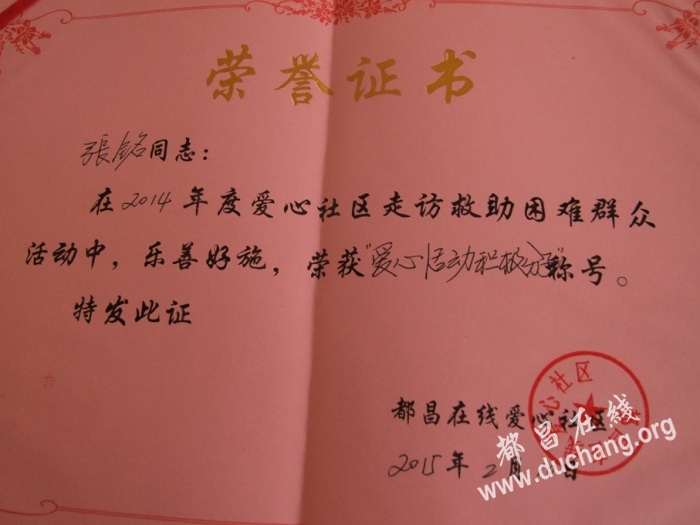 荣誉证书
張铭同志：
在2014年度爱心社区走访救助困难群众
活动中，乐善好施，荣获“爱心活动积极分子”称号。
特发此证
心社区
都昌在线爱心社区
2015年2月 日
都昌在线
www.duchang.org